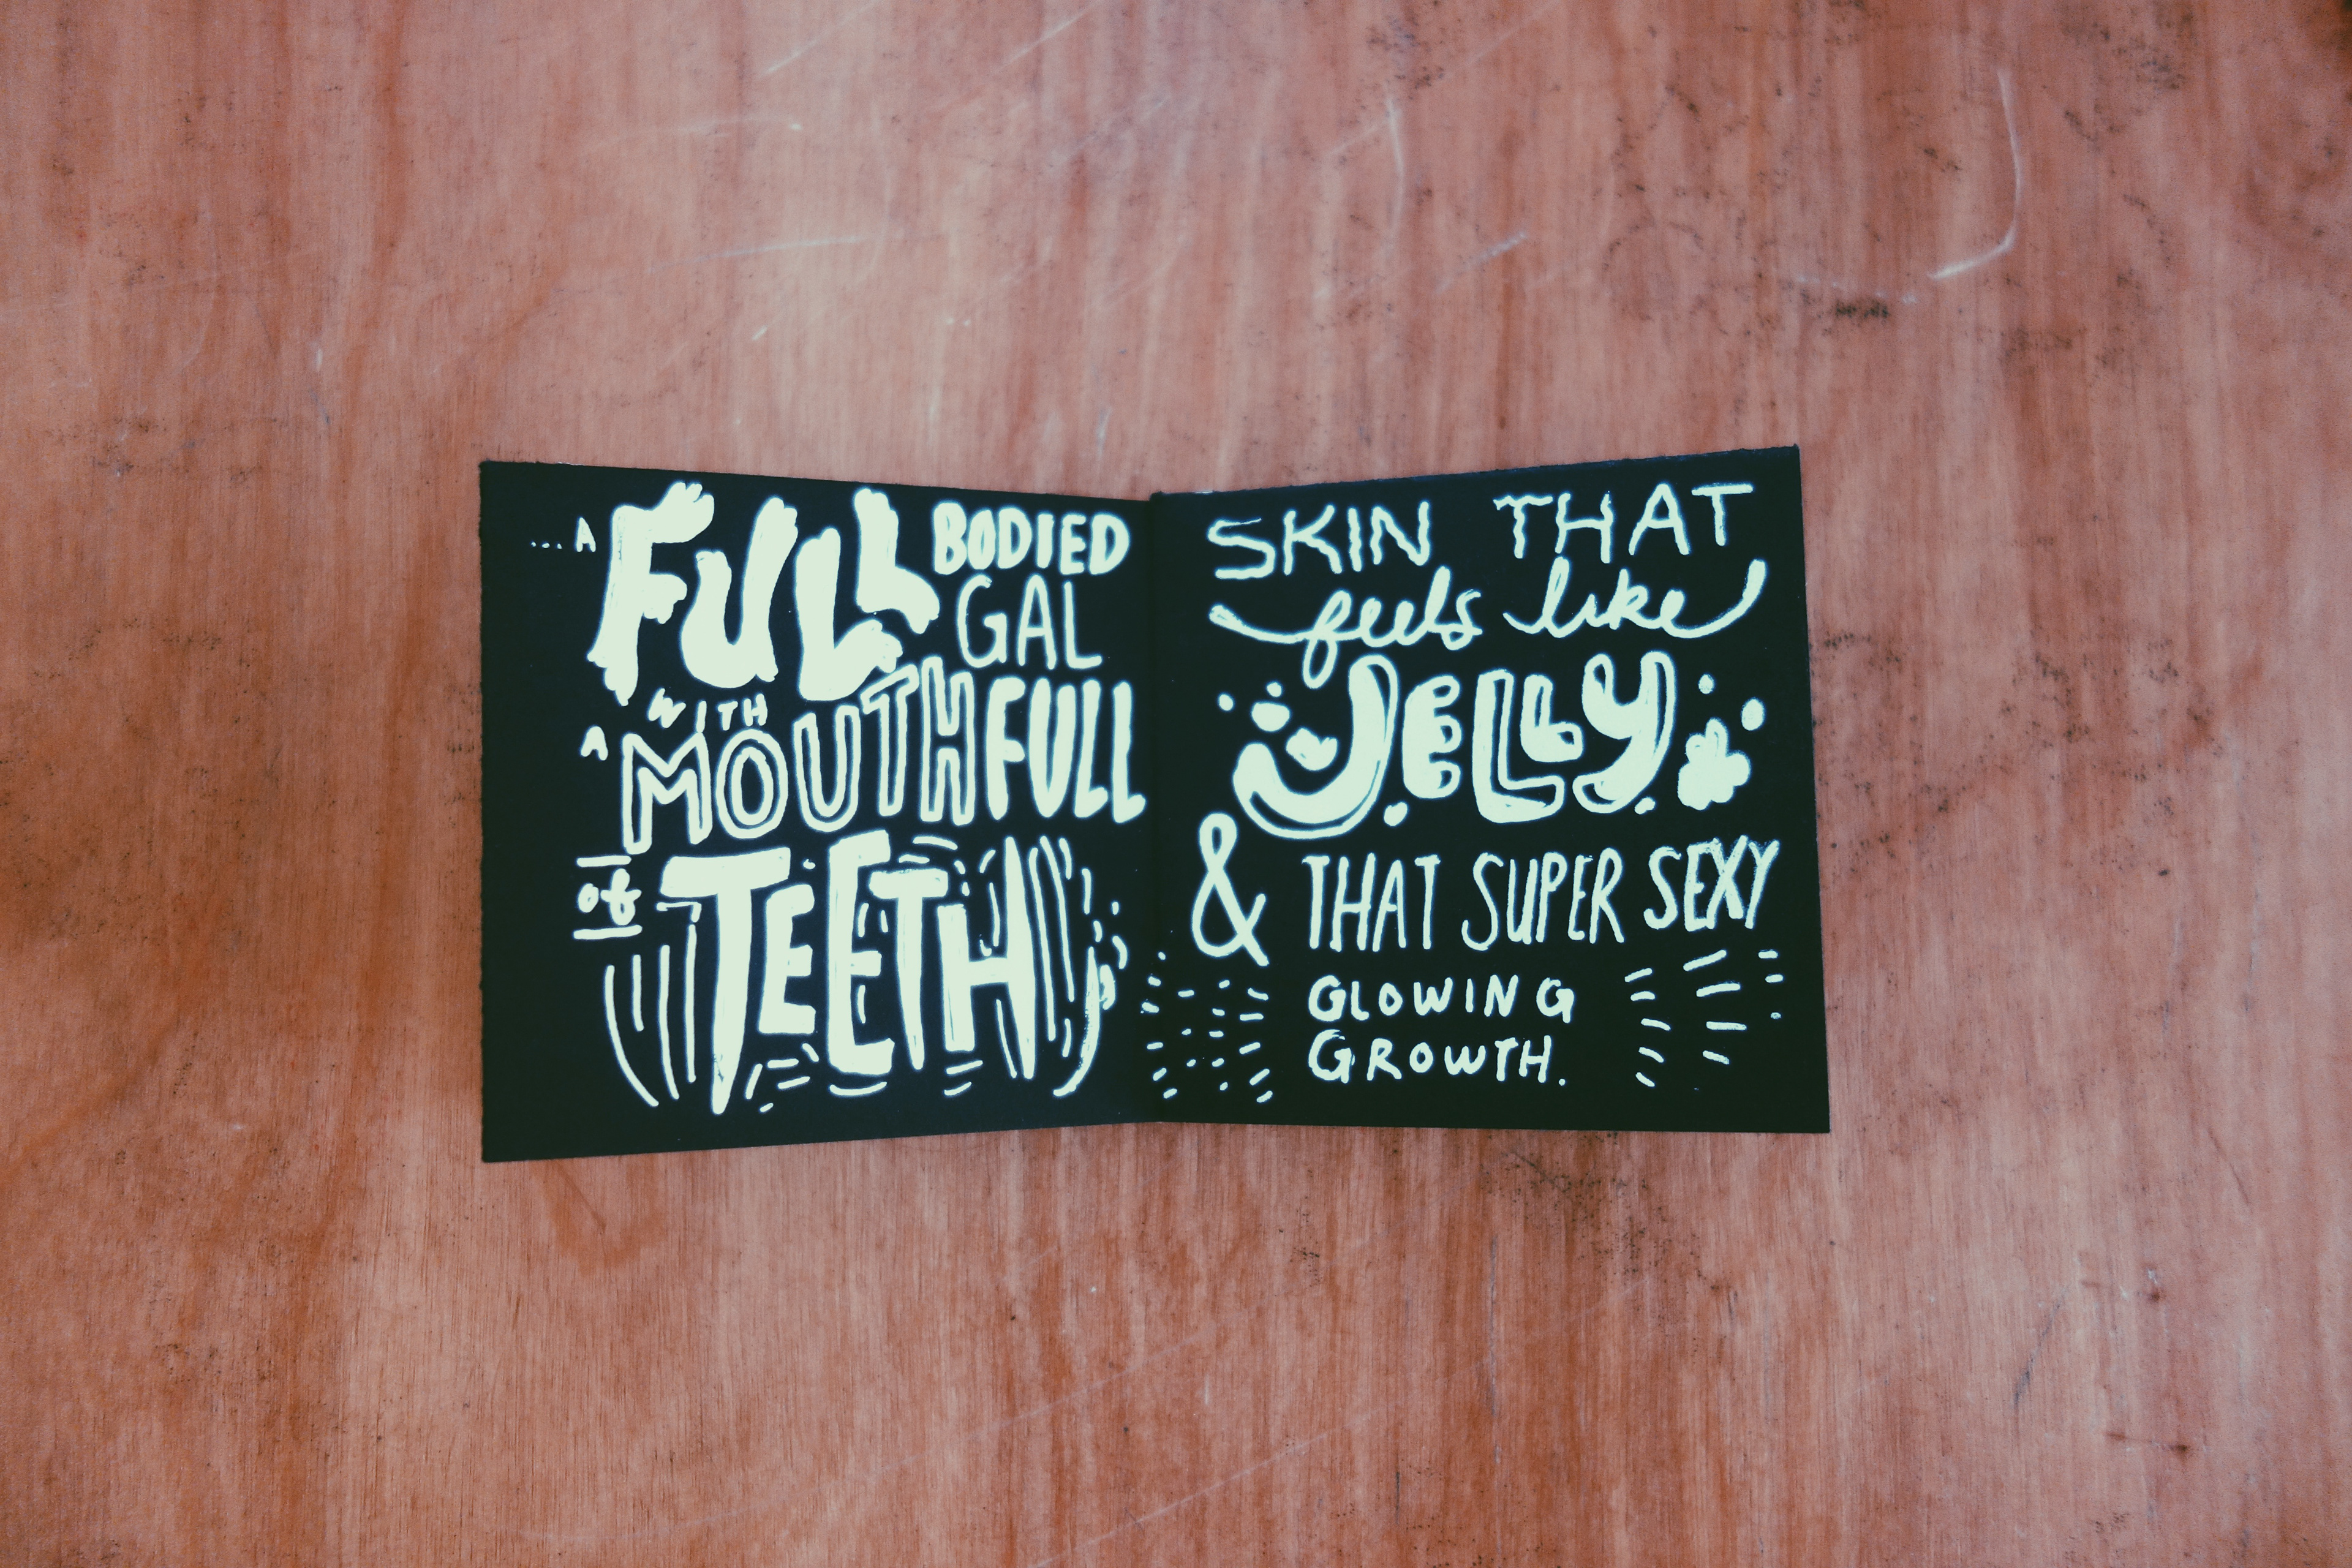 ...A FULL BODIED
GAL
WITH
A MOUTHFULL
of TEETH
SKIN THAT
feels like
JELLY
& THAT SUPER SEXY
GLOWING
GROWTH.